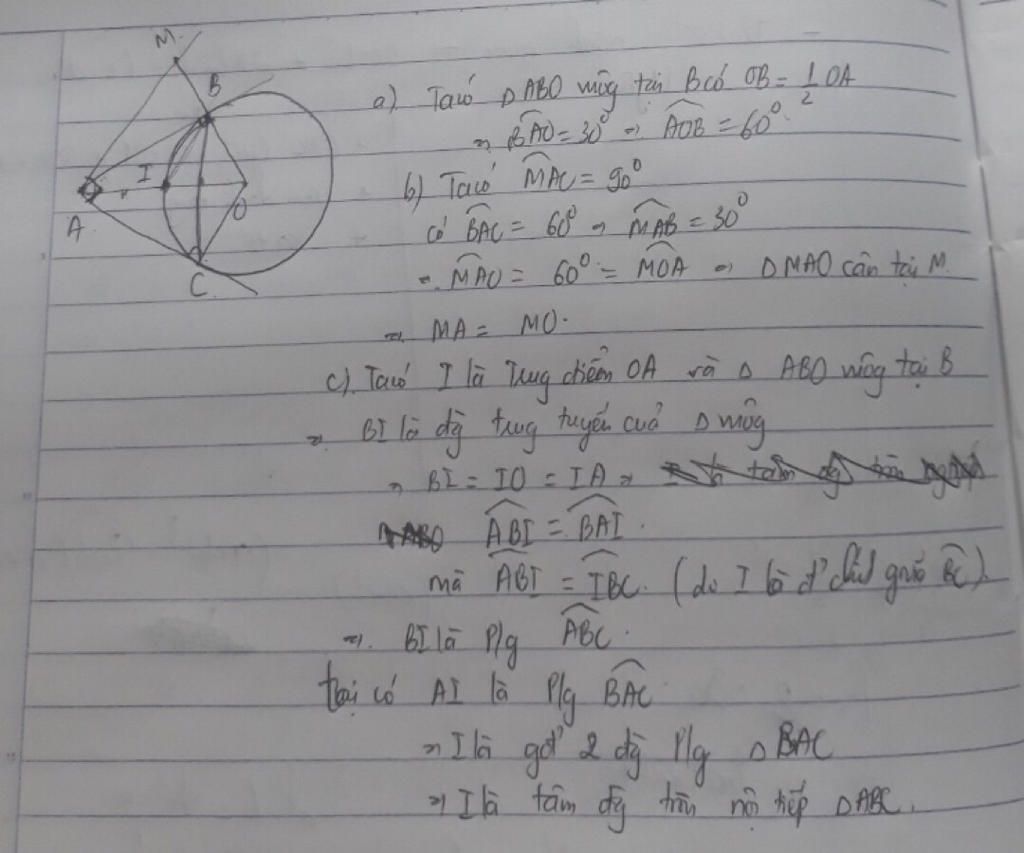 M
B
I
A
O
C
a) Ta có Δ ABO vuôg tại B có OB = 1/2 OA
⇒ \widehat{BAO} = 30⁰ ⇒ \widehat{AOB} = 60⁰.
b) Ta có \widehat{MAC} = 90⁰
có \widehat{BAC} = 60⁰ ⇒ \widehat{MAB} = 30⁰
⇒ \widehat{MAO} = 60⁰ = \widehat{MOA} ⇒ Δ MAO cân tại M.
⇒ MA = MO.
c). Ta có I là Trug điểm OA và Δ ABO vuôg tại B
⇒ BI là đg trug tuyến cuả Δ vuôg
⇒ BI = IO = IA ⇒
\widehat{ABI} = \widehat{BAI}.
mà \widehat{ABI} = \widehat{IBC}. (do I là đ' giữa \widehat{BC}).
⇒ BI là P/g \widehat{ABC}.
lại có AI là P/g \widehat{BAC}
⇒ I là gđ' 2 đg P/g Δ BAC
⇒ I là tâm đg tròn nội tiếp Δ ABC.